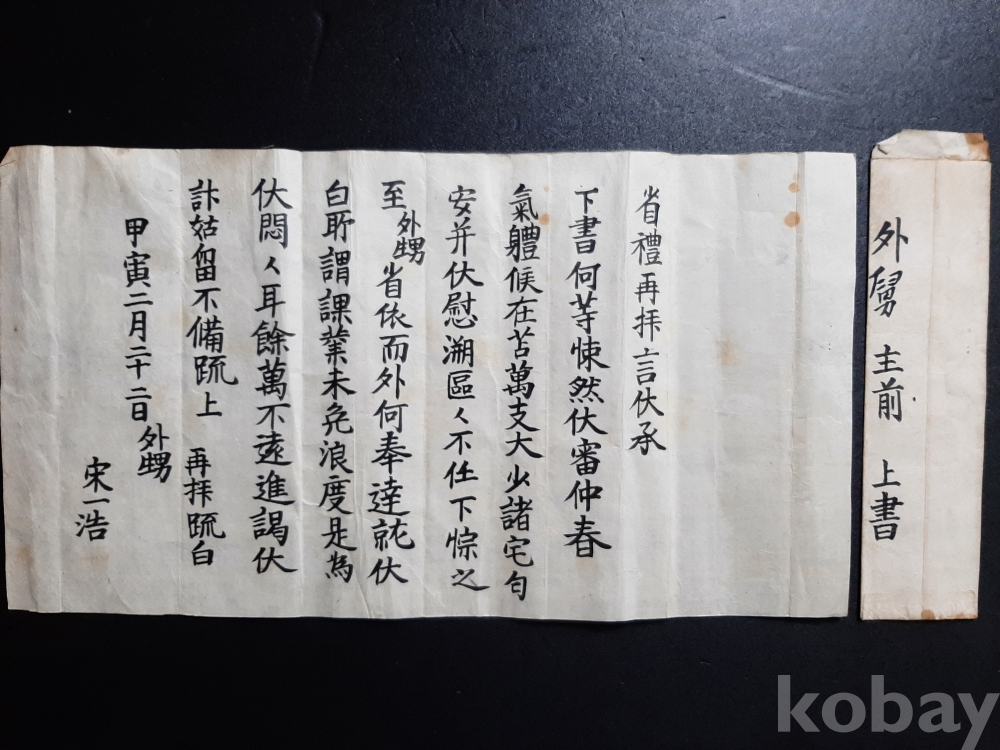 省禮再拝言伏承
下書何等悚然伏審仲春
氣體候在苫萬支大少諸宅匀
安并伏慰溯區々不任下悰之
至外甥省依而外何奉達就伏
白所謂課業未免浪度是爲
伏悶々耳餘萬不遠進謁伏
計姑留不備疏上 再拝疏白
甲寅二月二十二日外甥
宋一浩
外舅 主前 上書
kobay